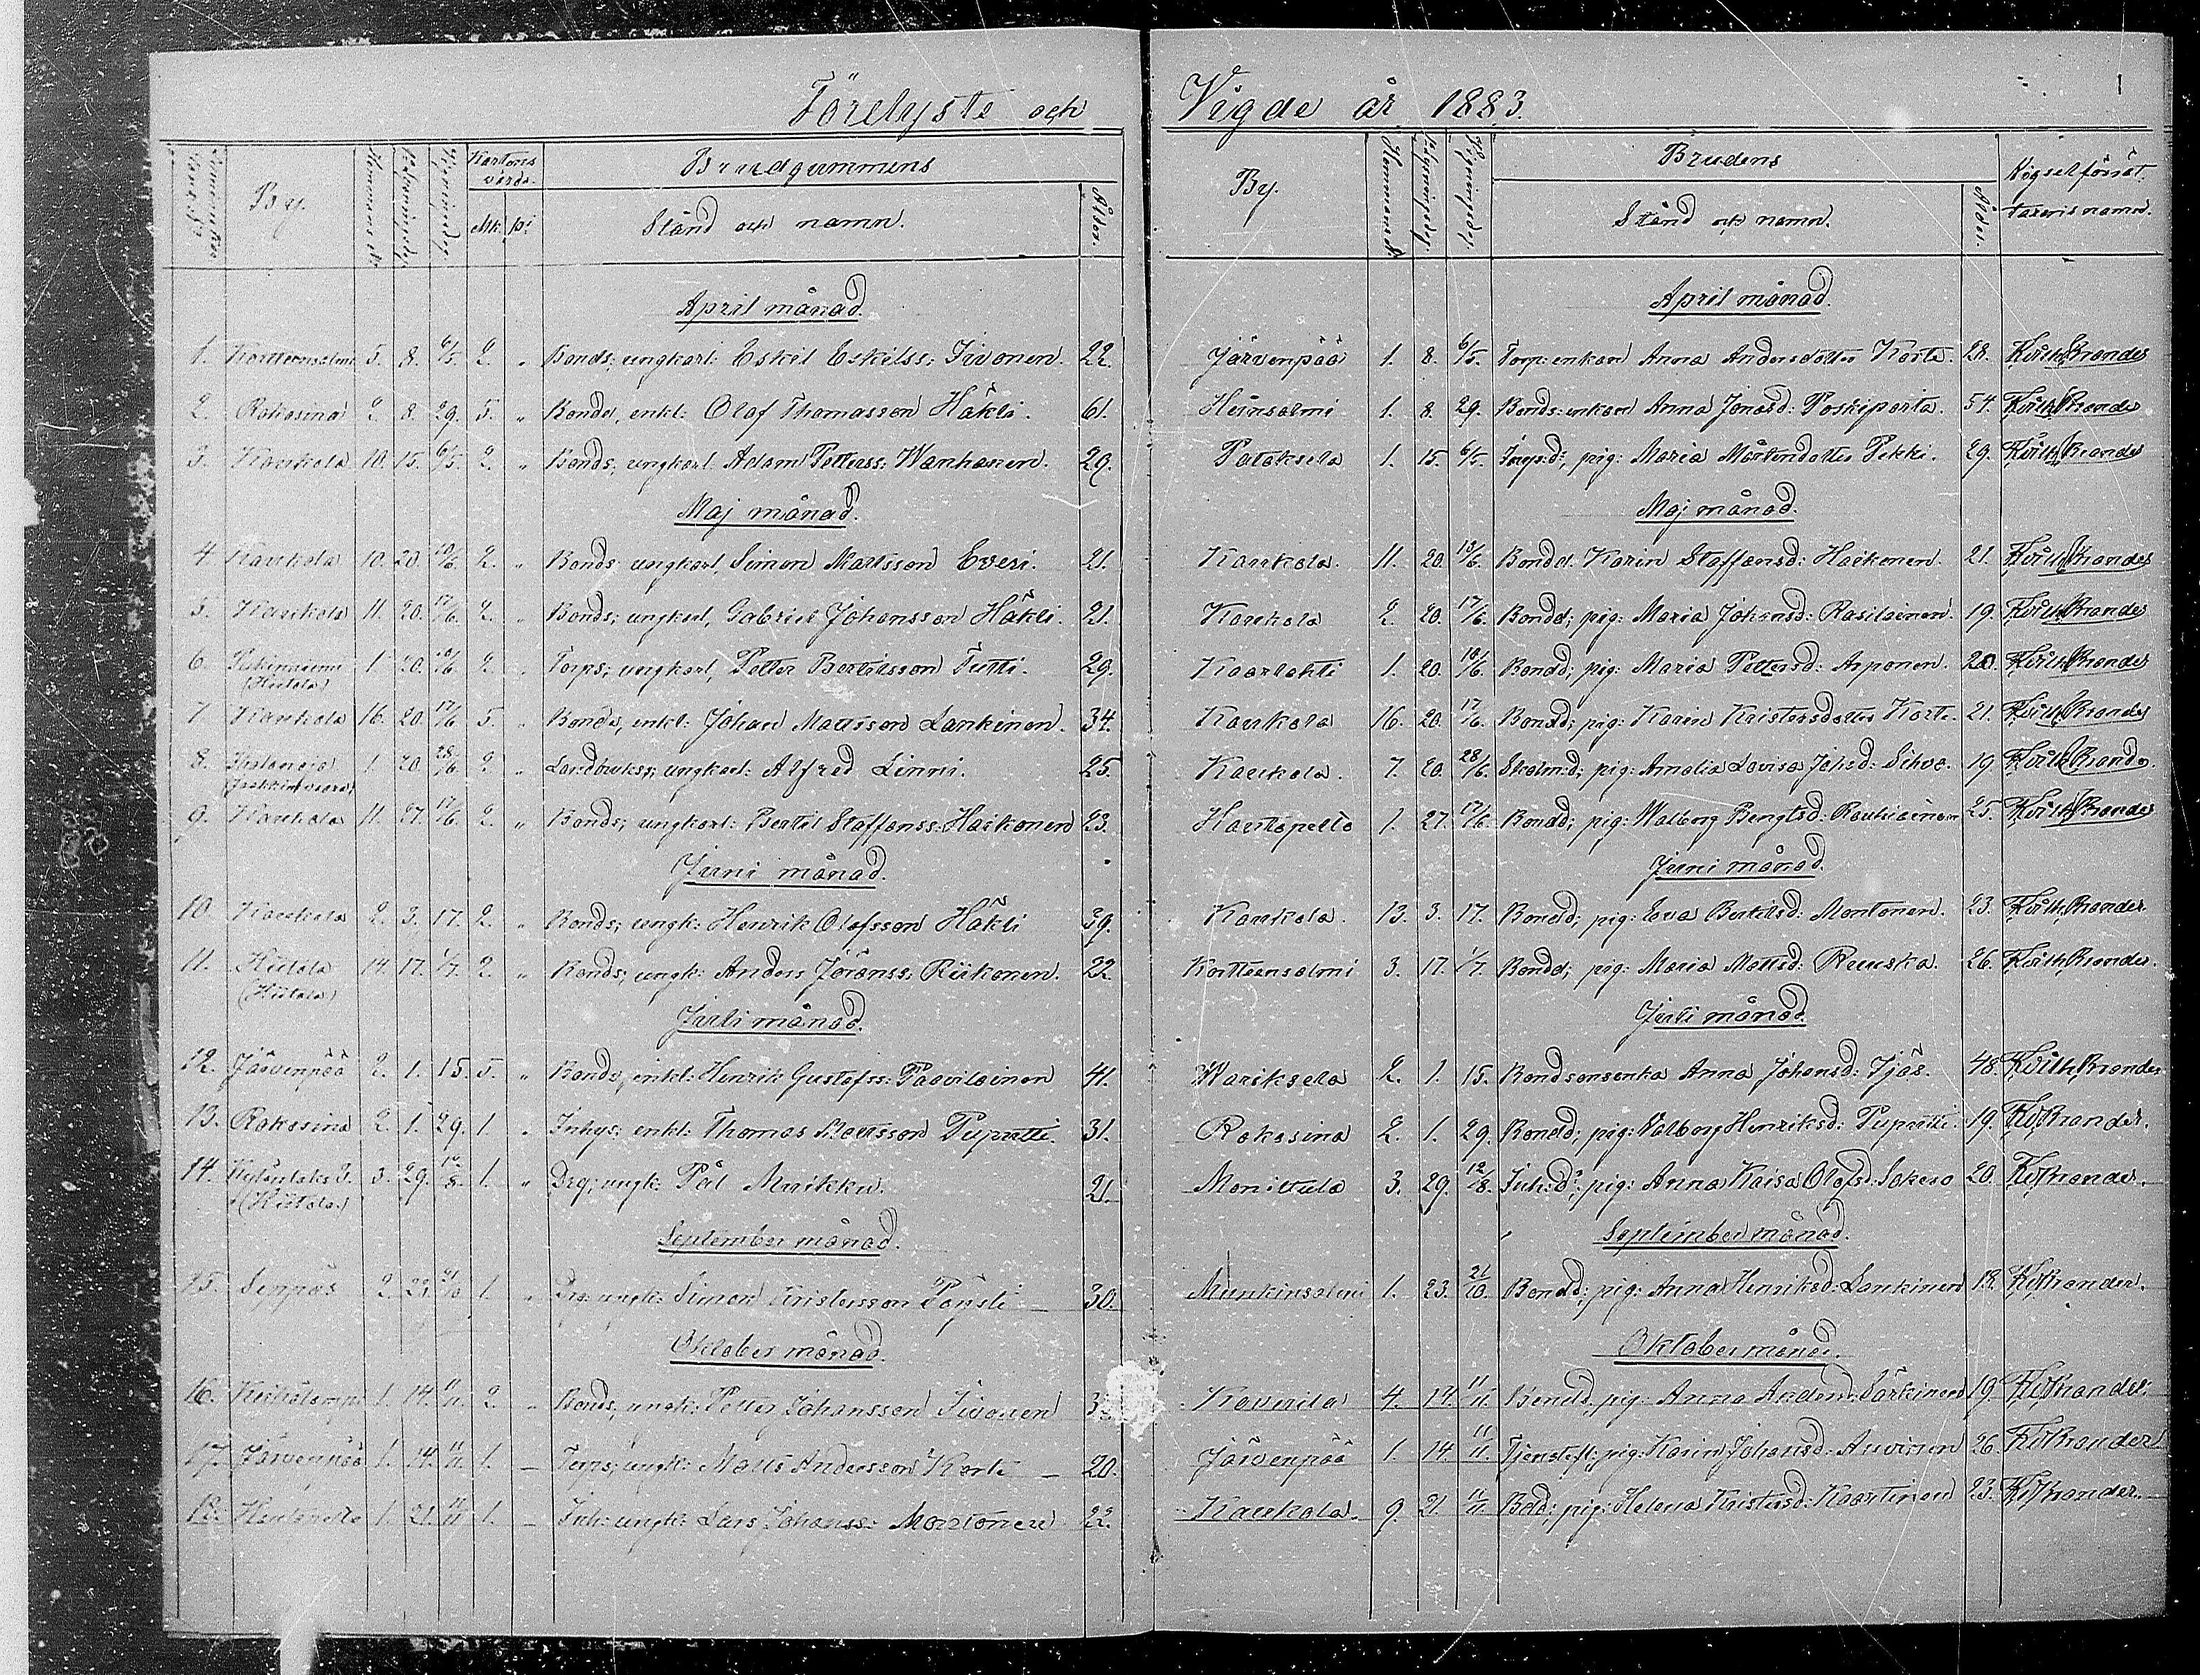 Förelyste och Vigde år 1883.
1
By. Hemmans № Lysningsdag. Vigningsdag. Kartans värde. Mk. pi Brudgummens Stånd och namn. Ålder. By. Hemmans № Lysningsdag. Vigningsdag. Brudens Stånd och namn. Ålder. Vigselförrättarens namn.
April månad. April månad.
1. 5. 8. 6/5. 2. " Bonds; ungkarl: Eskil Eskilss: Iivonen. 22. Järvenpää 1. 8. 6/5. Torp: enkan Anna Andersdotter Korte. 28. Brander
2. Rokosina 2. 8. 29. 5. " Bonden, enkl: Olof Thomasson Häkli. 61. Heinsalmi 1. 8. 29. Bonds: enkan Anna Jonasd: Poskiparta. 54. Brander
3. Kaukola 10. 15. 6/5. 2. " Bonds; ungkarl: Adam Petterss: Wanhanen. 29. Pataksela 1. 15. 6/5. pig: Maria Mårtensdotter Pekki. 29. Brander
Maj månad. Maj månad.
4. Kaukola 10. 20. 2. " Bonds: ungkarl, Simon Mattsson Everi. 21. Kaukola. 11. 20. Bondd. Karin Staffansd: Haikonen. 21. Brander
5. Kaukola 11. 20. 17/6. 2. " Bonds; ungkarl, Gabriel Johansson Häkli. 21. Kaukola 2. 20. 17/6. Bondd; pig: Maria Johansd: Rasilainen. 19. Brander
6. (Hiitola) 1. 20. 2. " Torps; ungkarl, Petter Bertilsson Tutti. 29. Kaarlahti 1. 20. Bondd; pig: Maria Pettersd: Asponen. 20. Brander
7. Kaukola 16. 20. 17/6. 5. " Bonde, enkl: Johan Mattsson Lankinen. 34. Kaukola 16. 20. 17/6. Bondd; pig: Karin Kristersdotter Korte. 21. Brander
8. (Jaakkimvaara) 1. 20. 28/6. 2. " Landbruks; ungkarl: Alfred Linni. 25. Kaukola. 7. 20. 28/6. pig: Amalia Lovisa Johsd: Sihvo. 19 Brander
9. Kaukola 11. 27. 17/6. 2. " Bonds; ungkarl: Bertil Staffanss: Haikonen 23. Haapelto 1. 27. 17/6. Bondd; pig: Walborg Bengtsd: Raukiainen 25. Brander
Juni månad. Juni månad.
10. Kaukola 2. 3. 17. 2. " Bonds; ungk: Henrik Olofsson Häkli 39. Kaukola. 13. 3. 17. Bondd; pig: Eva Bertilsd: Montonen. 23. Brander
11. Hiitola (Hiitola) 14. 17. 1/7. 2. " Bonds; ungk: Anders Jöranss: Riikonen. 22. Korttensalmi 3. 17. 1/7. Bondd; pig: Maria Mattsd: Ruuska. 26. Brander.
Juli månad. Juli månad.
12. Järvenpää 2. 1. 15. 5. " Bonds; enkl: Henrik Gustafss: Paavilainen 41. Wariksela 2. 1. 15. Bondsonsenka Anna Johansd: Tjäs. 48. Brander
13. Rokosina 2. 1. 29. 1. " Inhys; enkl: Thomas Mattsson Puputti. 31. Rokosina 2. 1. 29. Bondd; pig: Valborg Henriksd: Puputti. 19. Brander.
14. (Hiitola.) 3. 29. 12/8. 1. " Drg; ungk: Pål Muukku. 21. Monittula 3. 29. 12/8. Inh:d:, pig: Anna Kaisa Olofsd: Sokero 20. Brander.
September månad. September månad.
15. Seppäs 2. 23. 21/10 1. " Drg: ungk: Simon Kristersson 30. Munkinsalmi 1. 23. 21/10. Bondd; pig: Anna Henriksd: Lankinen 18. Brander.
Oktober månad. Oktober månad.
16. 1. 14. 11/11. 2. " Bonds; ungk: Petter Johansson Iivonen Kovirila 4. 14. 11/11. Bondd, pig: Anna Andersd: Särkinen 19. Brander.
17. Järvenpää 1. 14. 11/11 1. – Torps; ungk: Matts Andersson Korte – 20. Järvenpää 1. 14. 11/11. Tjenstefl: pig: Karin Johansd: Auvinen 26. Brander
18. 1. 21. 11/11 1. – Inh: ungk: Lars Johanss: Montonen 22. Kaukola. 9. 21. 11/11 pig: Helena Kristersd: Kaartinen 23. Brander.